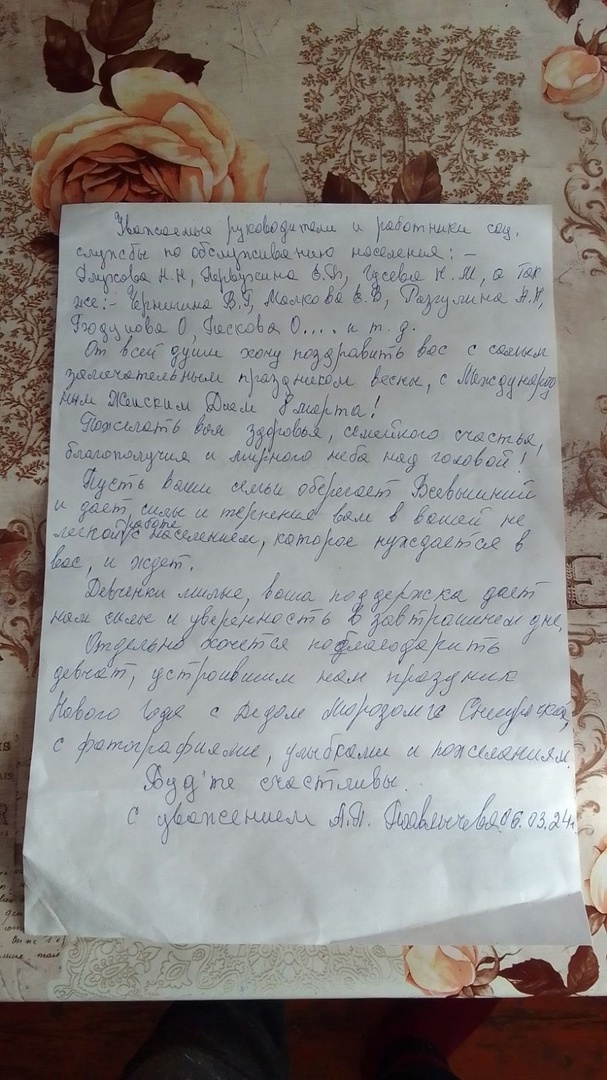 Уважаемые руководители и работники соц.
службы по обслуживанию населения: -
Глухова Н.Н, Первухина Е.В, Гусева Н.М, а так
же:- Чернигина В.Г, Малкова Е.В, Разгулина А.Н,
О, Пескова О.... и т.д.
От всей души хочу поздравить вас с самым
замечательным праздником весны, с Международ
ным Женским Днем 8 марта!
Пожелать вам здоровья, семейного счастья,
благополучия и мирного неба над головой!
Пусть ваши семьи оберегает Всевышний
и дает силы и терпение вам в вашей не
легкой работе с населением, которое нуждается в
вас, и ждет.
Девченки милые, ваша поддержка дает
нам силы и уверенность в завтрашнем дне.
Отдельно хочется поблагодарить
девчат, устроившим нам праздник
Нового Года с Дедом Морозом и Снегурочкой,
с фотографиями, улыбками и пожеланиям.
Буд'те счастливы.
С уважением А.П. 06.03.24г.